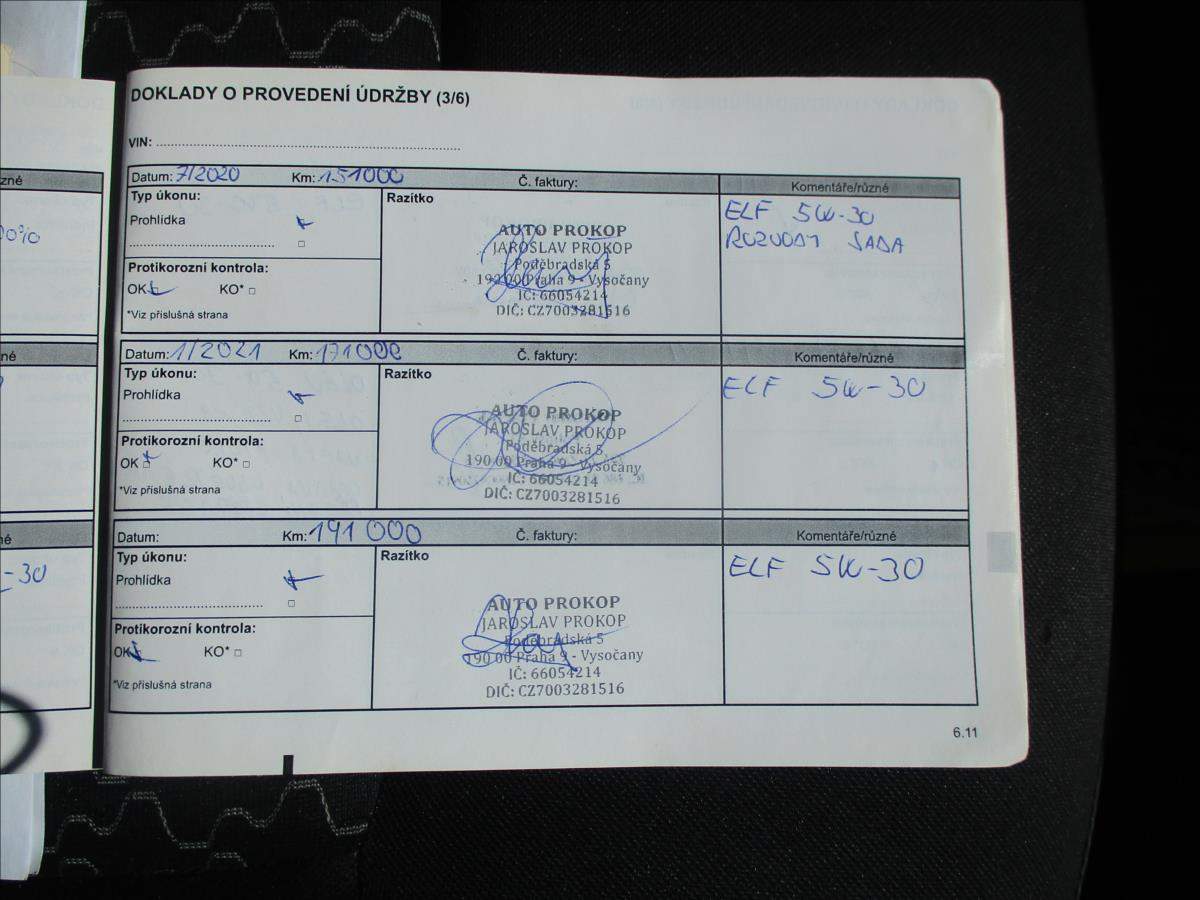 DOKLADY O PROVEDENÍ ÚDRŽBY (3/6)
VIN:
Datum: 7/2020 Km: 151000 Č. faktury: Komentáře/různé
Typ úkonu:
Prohlídka
Protikorozní kontrola:
OK KO*
*Viz příslušná strana
Razítko
AUTO PROKOP
JAROSLAV PROKOP
Poděbradská 5
190 00 Praha 9 - Vysočany
IČ: 66054214
DIČ: CZ7003281516
ELF 5W-30
ROZVODY SADA
Datum: 1/2021 Km: 171000 Č. faktury: Komentáře/různé
Typ úkonu:
Prohlídka
Protikorozní kontrola:
OK KO*
*Viz příslušná strana
Razítko
AUTO PROKOP
JAROSLAV PROKOP
Poděbradská 5
190 00 Praha 9 - Vysočany
IČ: 66054214
DIČ: CZ7003281516
ELF 5W-30
Datum: Km: 191 000 Č. faktury: Komentáře/různé
Typ úkonu:
Prohlídka
Protikorozní kontrola:
OK KO*
*Viz příslušná strana
Razítko
AUTO PROKOP
JAROSLAV PROKOP
Poděbradská 5
190 00 Praha 9 - Vysočany
IČ: 66054214
DIČ: CZ7003281516
ELF 5W-30
6.11